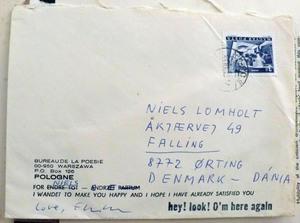 MAGYAR POSTA
NIELS LOMHOLT
AKJÆRVEJ 49
FALLING
8772 ØRTING
DENMARK - DÁNIA
BUREAU DE LA POESIE
00-950 WARSZAWA
P.O. Box 126
POLOGNE
FOR ENDRE TOT - ANDRZEJ PARTUM
I WANDET TO MAKE YOU HAPPY AND I HOPE I HAVE ALREADY SATISFIED YOU
Love,
hey! look! O'm here again